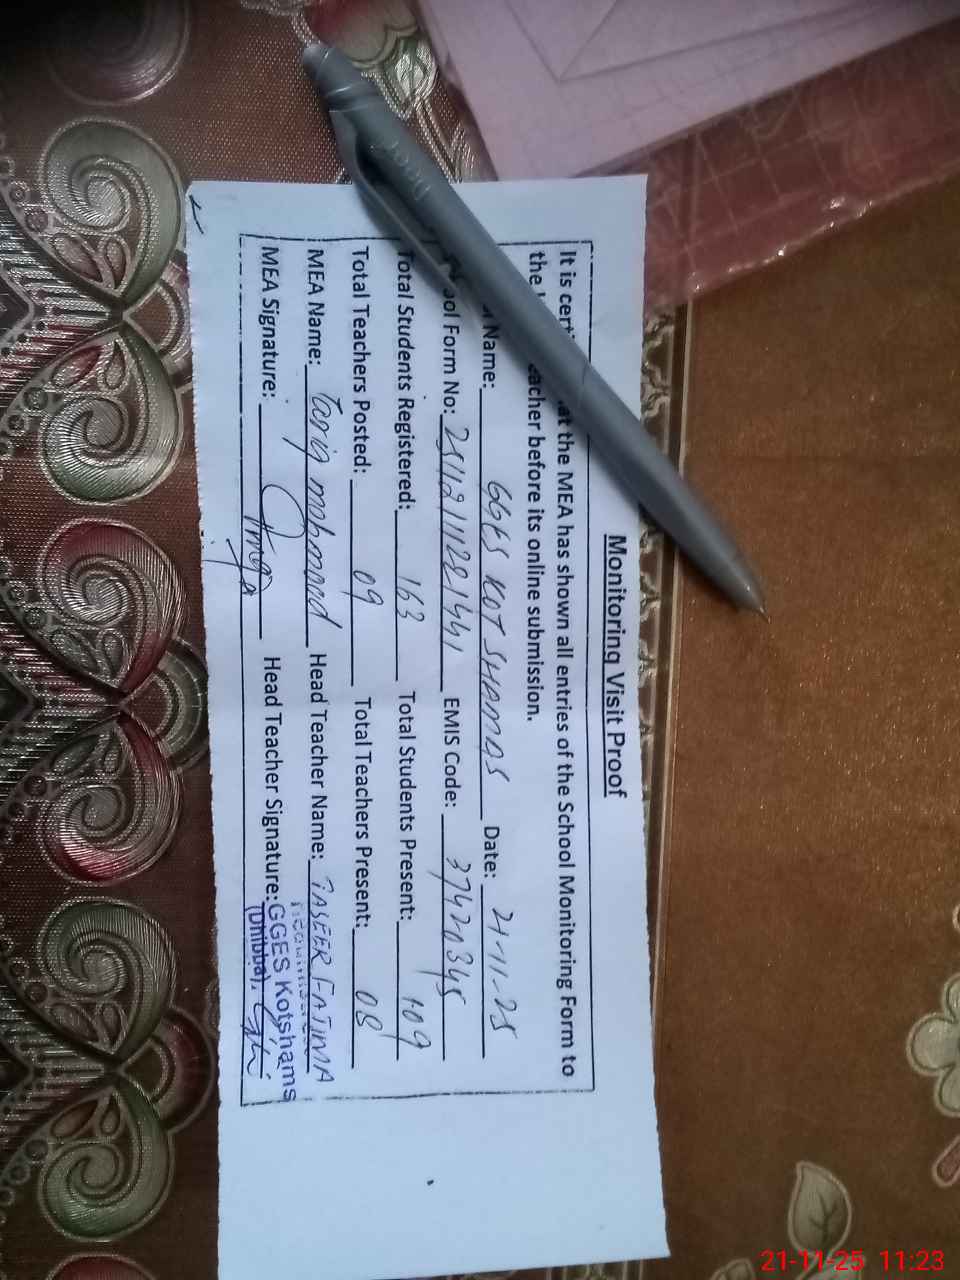 Monitoring Visit Proof
It is cert at the MEA has shown all entries of the School Monitoring Form to
the eacher before its online submission.
Name: GGES KOT SHAMAS Date: 21-11-25
ool Form No: EMIS Code: 37420345
Total Students Registered: 163 Total Students Present: 109
Total Teachers Posted: 09 Total Teachers Present: 08
MEA Name: Tariq mohmand Head Teacher Name: TASEER FATIMA
MEA Signature: Head Teacher Signature:
GGES Kotshams
(Dhibba)
Doer
21-11-25 11:23